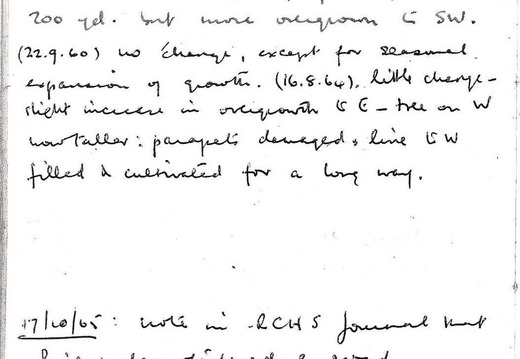 200 yd. but more overgrown to SW.
(22.9.60) no change, except for seasonal
expansion of growth. (16.8.64). little change -
slight increase in overgrowth to E - tree on W
now taller: parapets damaged, line to W
filled & cultivated for a long way.
17/10/65: note in RCHS Journal that